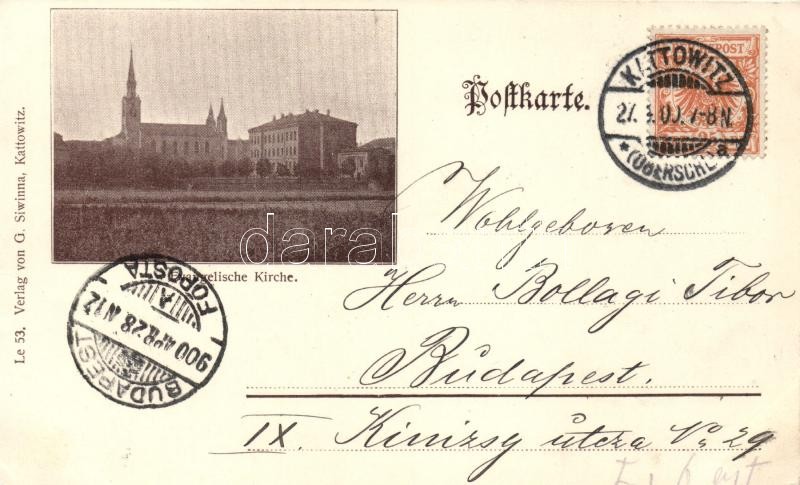 Le 53, Verlag von G. Siwinna, Kattowitz.
darab
Evangelische Kirche.
Postkarte.
POST
KATTOWITZ
27. 4. 00. 7-8 N.
* (OBERSCHL.) a
Wohlgeboren
Herrn Bollagi Tibor
Budapest.
IX. Kinizsy útcza No 29
BUDAPEST
900 APR. 28 N12
A
FŐPOSTA